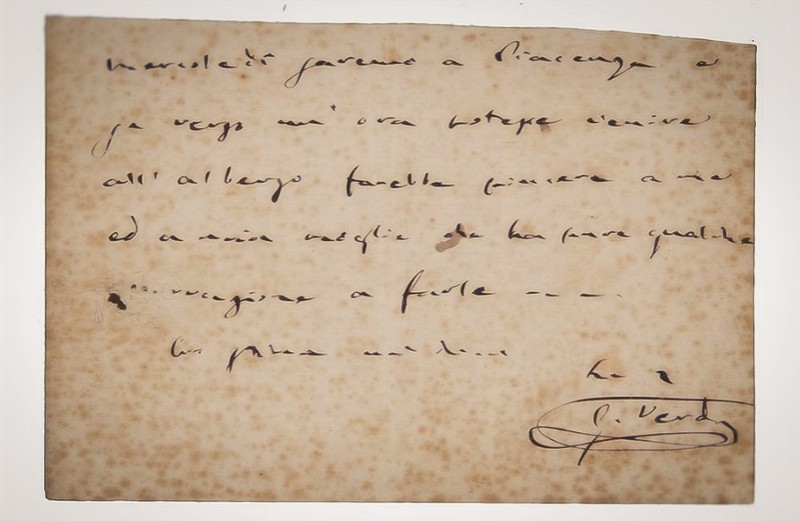 mercoledì saremo a Piacenza e
se verso un' ora potesse venire
all' albergo farebbe piacere a me
ed a mia moglie che ha pure qualche
a farle - - -
G. Verdi